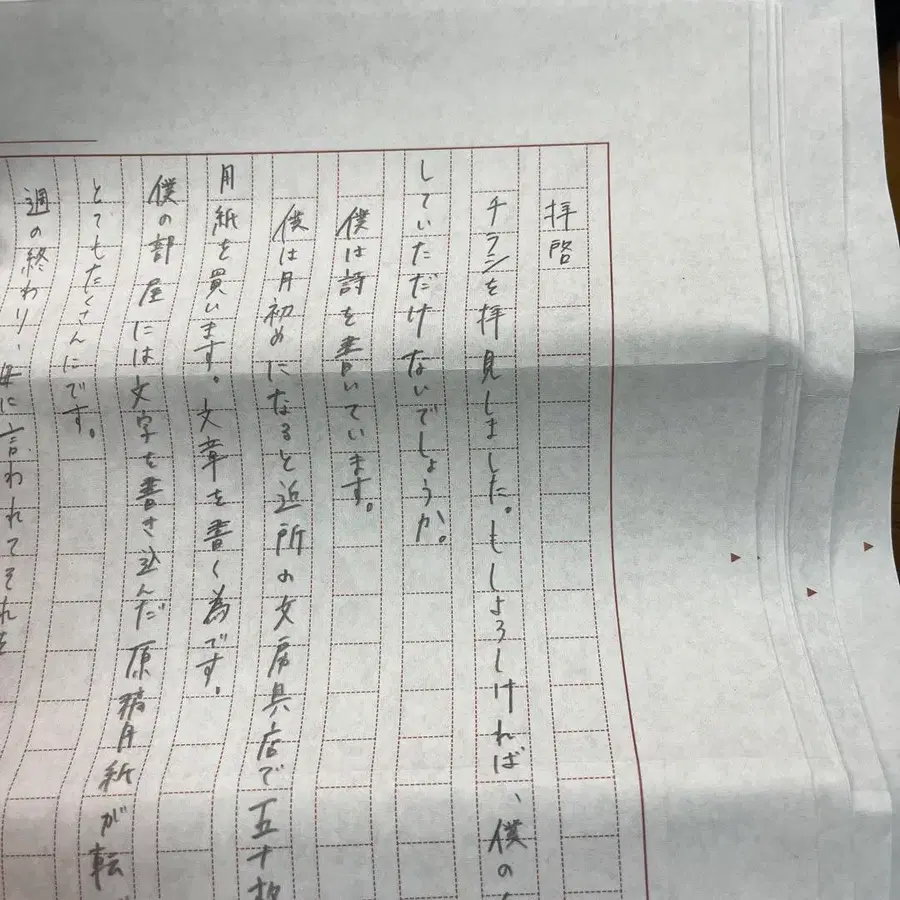 拝啓
チラシを拝見しました。もしよろしければ、僕の
していただけないでしょうか。
僕は詩を書いています。
僕は月初めになると近所の文房具店で五十枚
用紙を買います。文章を書く為です。
僕の部屋には文字を書き込んだ原稿用紙が転
とてもたくさんにです。
週の終わり、母に言われてそれを